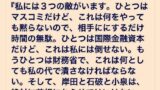 『私には3つの敵がいます。ひとつは
マスコミだけど、これは何をやって
も黙らないので、相手にするだけ
時間の無駄。ひとつは国際金融資本
だけど、これは私には倒せない。も
うひとつは財務省で、これは何とし
ても私の代で潰さなければならな
い。そして、岸田と石破と小泉は、